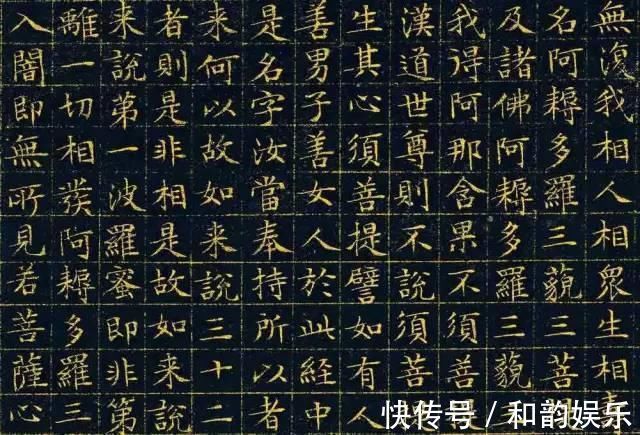 無復我相人相眾生相
名阿耨多羅三藐三菩
及諸佛阿耨多羅三藐
我得阿那含果不須菩
漢道世尊則不說須菩
生其心須菩提譬如有人
善男子善女人於此経中
是名字汝當奉持所以者
来何以故如来說三十二
者則是非相是故如来說
来說第一波羅蜜即非第
離一切相發阿耨多羅三
入闇即無所見若菩薩心
快传号 / 和韵娱乐